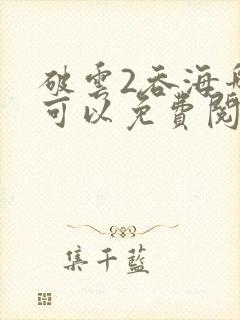 破雲2吞海
可以免費閱
集千藍